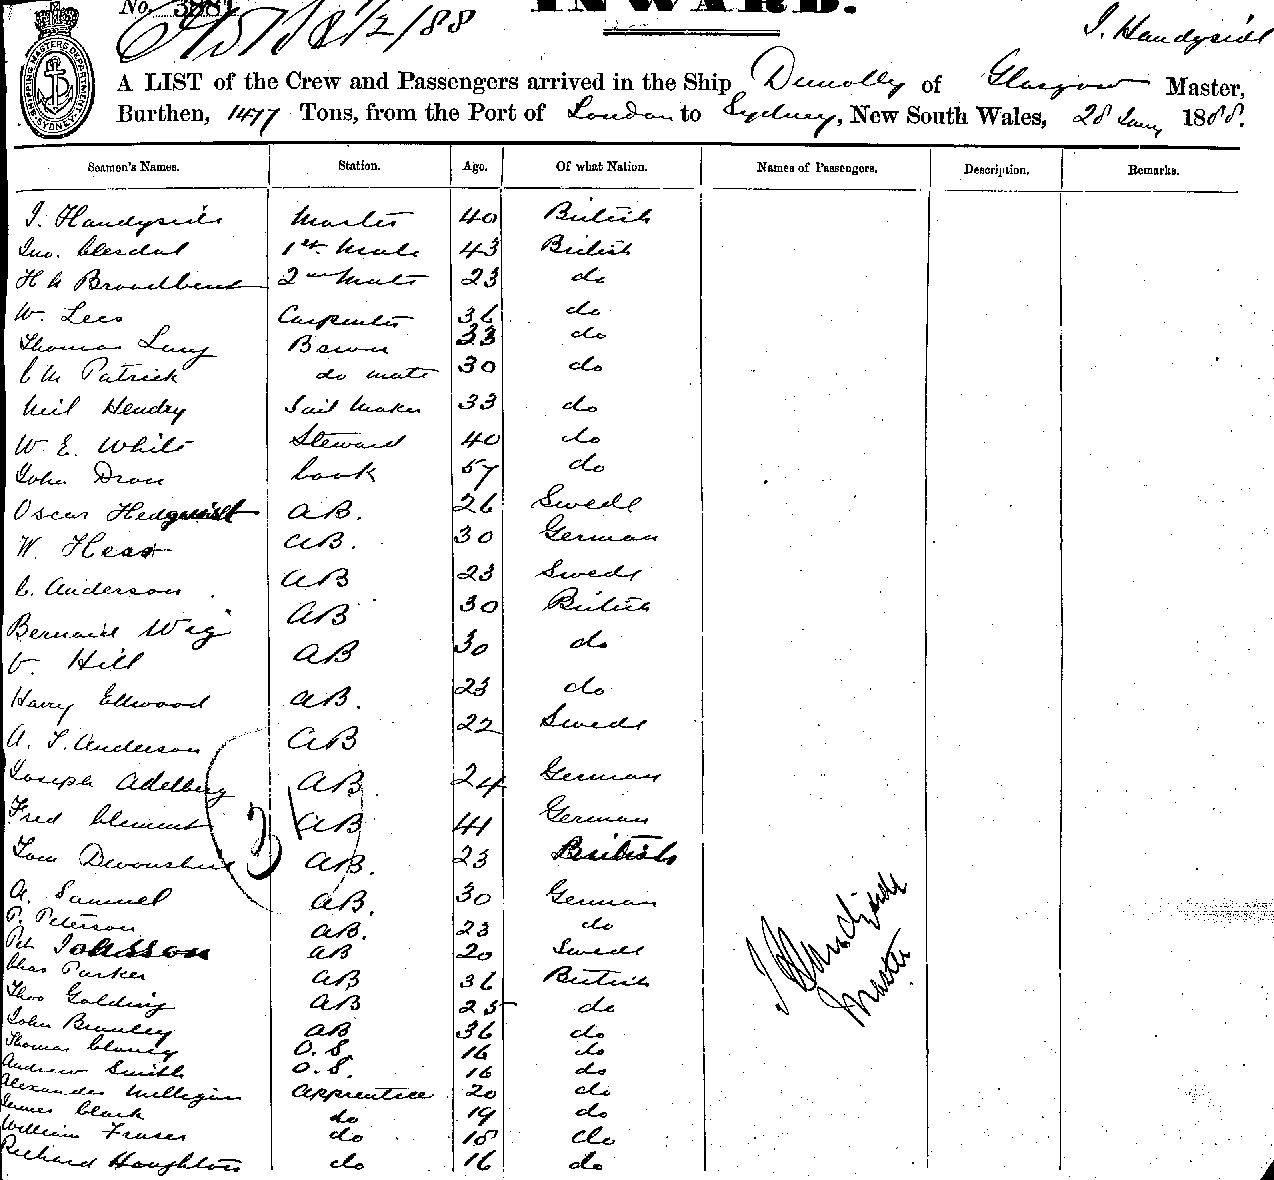 No. 3881
INWARD.
8/2/88
J. Handyside
A LIST of the Crew and Passengers arrived in the Ship Dunolly of Glasgow Master,
Burthen, 1477 Tons, from the Port of London to Sydney, New South Wales, 28 Jany 1888.
Seamen's Names. Station. Age. Of what Nation. Names of Passengers. Description. Remarks.
J. Handyside Master 40 British
Jno. 1st Mate 43 British
H A Broadbent 2nd Mate 23 do
W. Lees Carpenter 36 do
Thomas Bswn 33 do
C M Patrick do mate 30 do
Neil Hendry Sail Maker 33 do
W. E. White Steward 40 do
John Dron Cook 57 do
Oscar Hedquist AB. 26 Swede
W. Hess AB. 30 German
C. Anderson AB 23 Swede
Bernard Wig AB 30 British
V. Hill AB 30 do
Harry Ellwood AB. 23 do
A. S. Anderson AB 22 Swede
Joseph Adelberg AB. 24 German
Fred Clement AB 41 German
Tom Devonshire AB. 23 British
A. Samuel AB. 30 German
P. Peterson AB. 23 do
Pet. Johnsson AB 20 Swede
Chas Parker AB 36 British
Thos Golding AB 25 do
John Bromley AB 36 do
Thomas Clancy O.S 16 do
Andrew Smith O.S. 16 do
Alexander Milligan Apprentice 20 do
James Clark do 19 do
William Fraser do 18 do
Richard Houghton do 16 do
31
J Handyside
Master